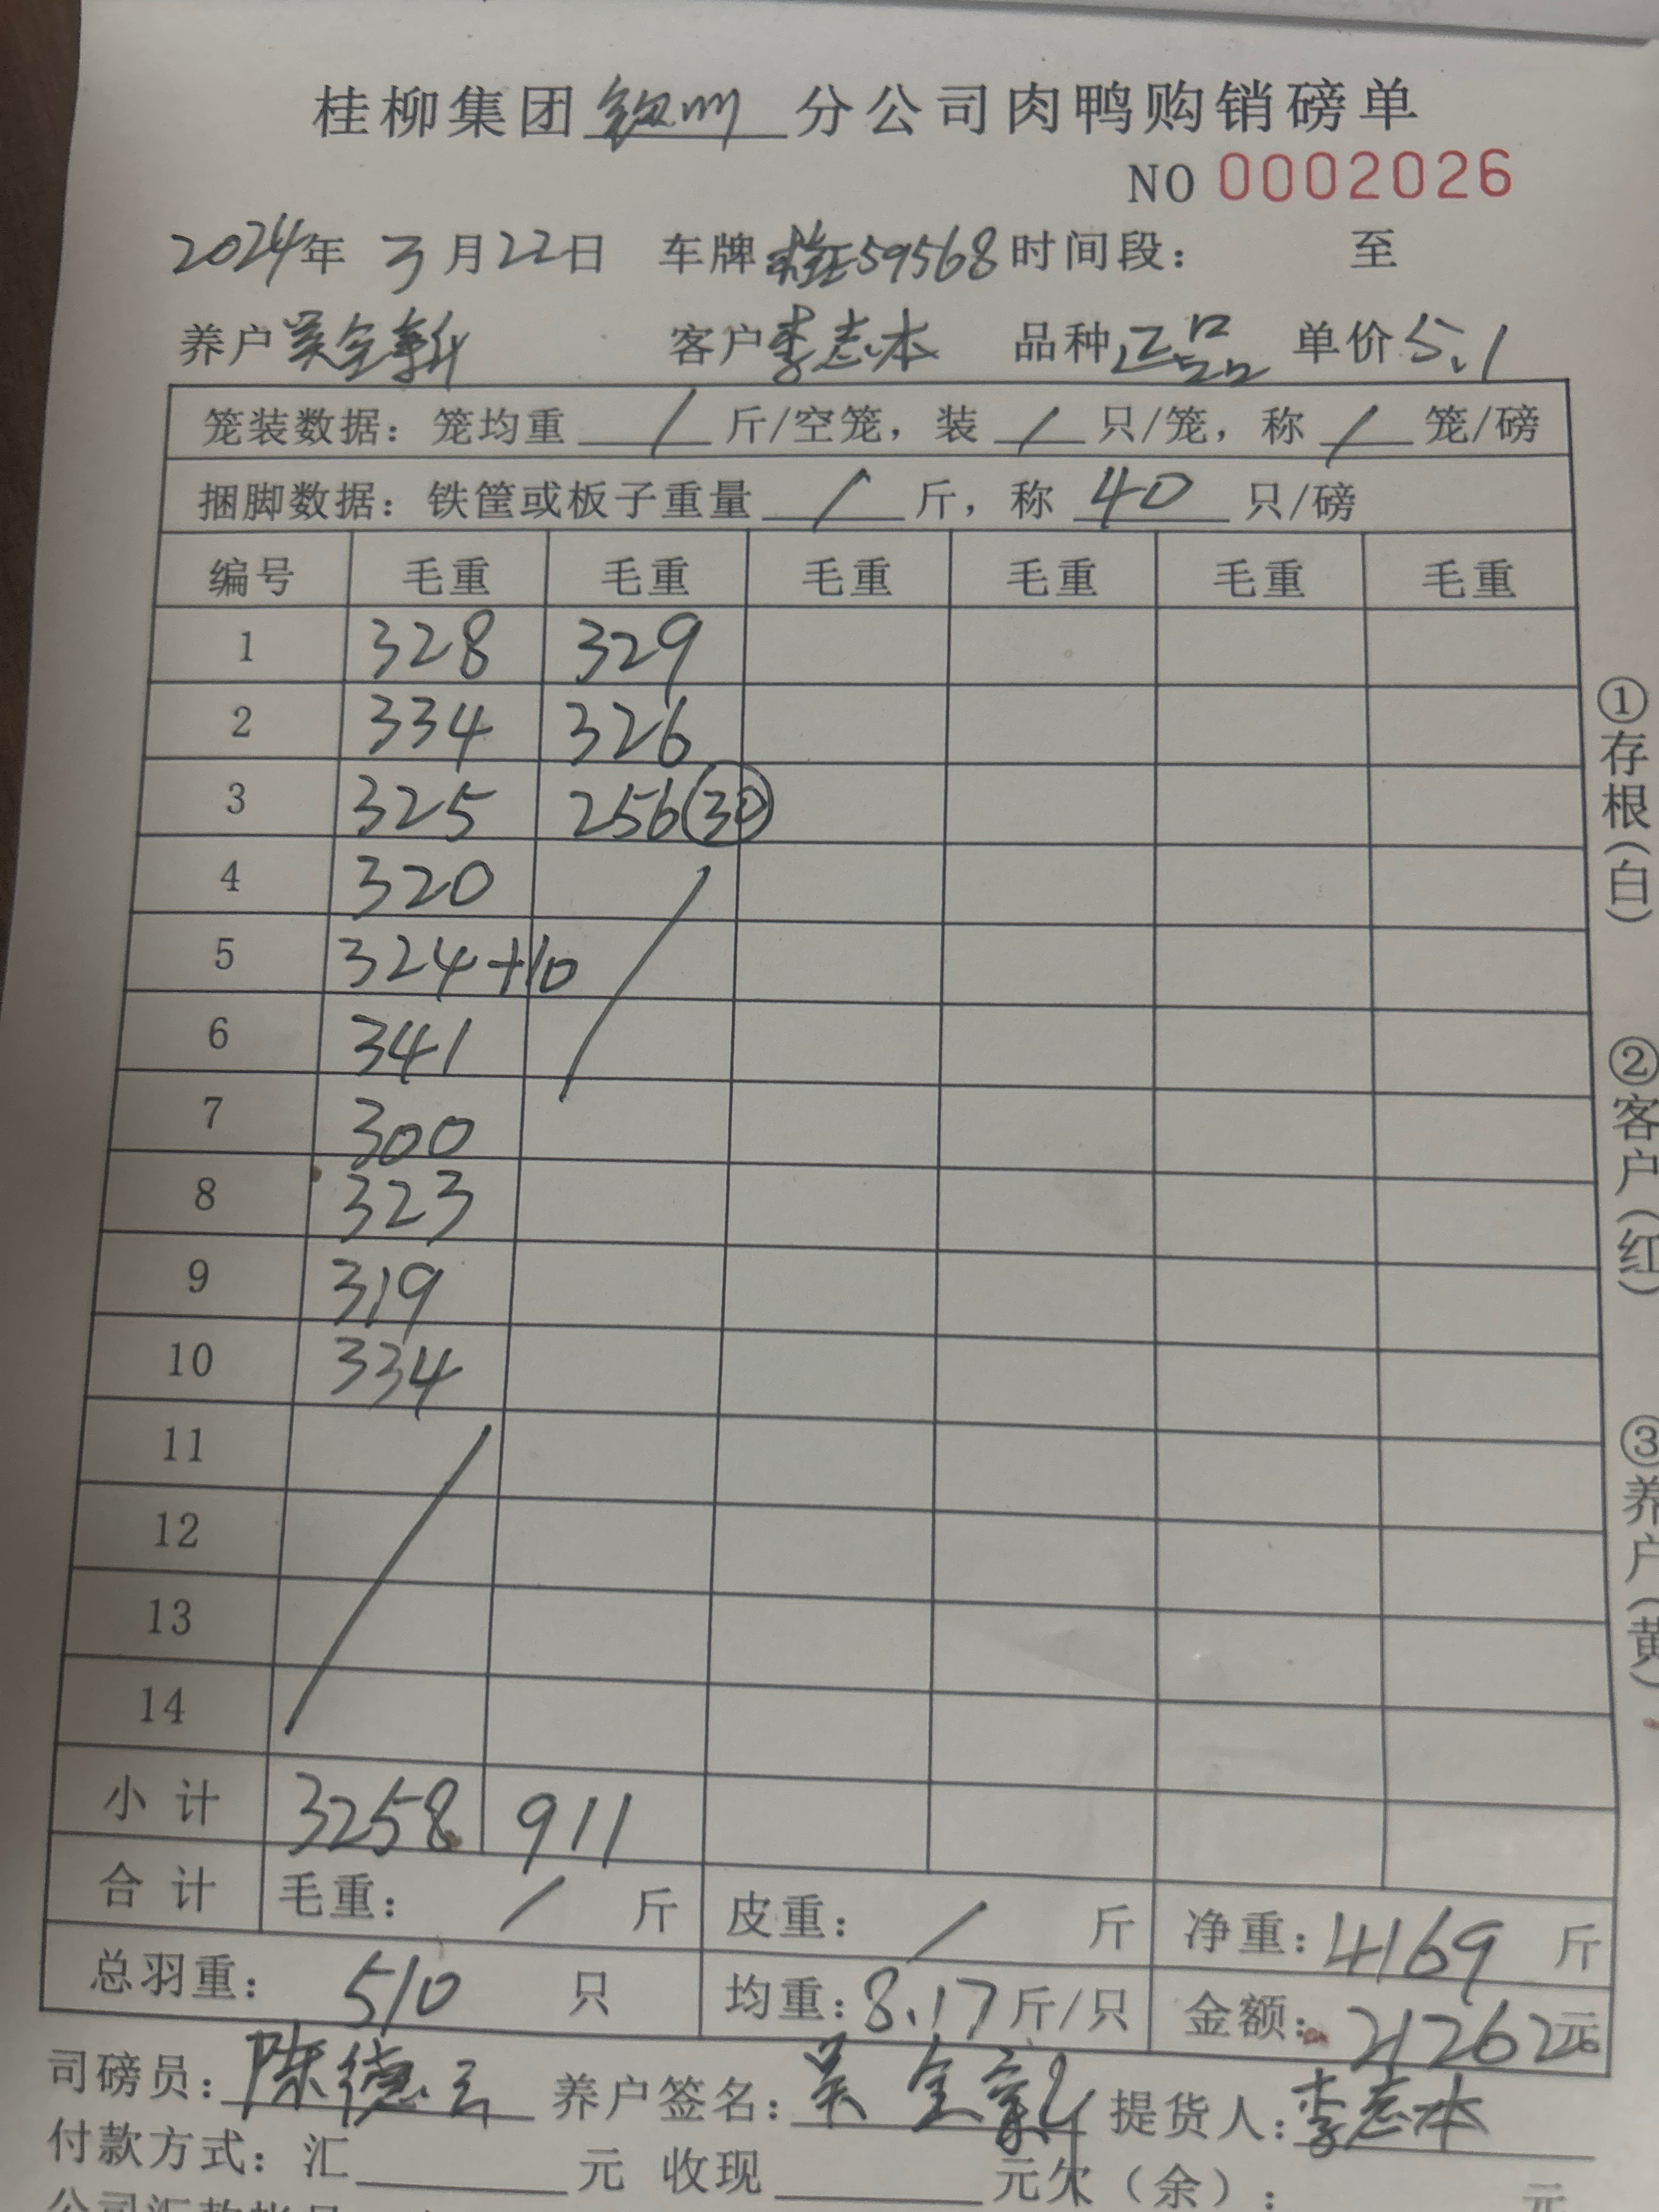 桂柳集团钦州分公司肉鸭购销磅单
NO 0002026
2024年 3月22日 车牌桂E59568时间段： 至
养户吴全新 客户李志本 品种正品 单价5.1
笼装数据：笼均重 / 斤/空笼，装 / 只/笼，称 / 笼/磅
捆脚数据：铁筐或板子重量 / 斤，称 40 只/磅
编号 毛重 毛重 毛重 毛重 毛重 毛重
1 328 329
2 334 326
3 325 256(30)
4 320
5 324+10
6 341
7 300
8 323
9 319
10 334
11
12
13
14
小计 3258 911
合计 毛重： / 斤 皮重： / 斤 净重：4169 斤
总羽重： 510 只 均重：8.17斤/只 金额：21262元
司磅员：陈德云 养户签名：吴全新 提货人：李志本
付款方式：汇 元 收现 元欠（余）： 元
①存根(白)
②客户(红)
③养户(黄)